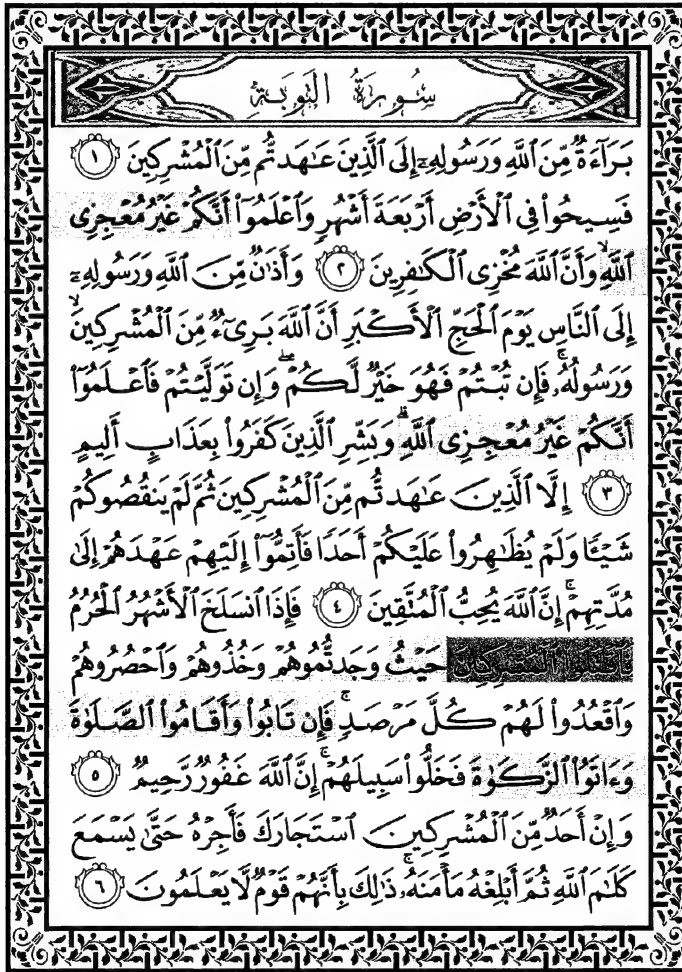 سُورَةُ التَّوْبَةِ
بَرَآءَةٌ مِّنَ ٱللَّهِ وَرَسُولِهِۦٓ إِلَى ٱلَّذِينَ عَٰهَدتُّم مِّنَ ٱلْمُشْرِكِينَ ١
فَسِيحُوا۟ فِى ٱلْأَرْضِ أَرْبَعَةَ أَشْهُرٍ وَٱعْلَمُوٓا۟ أَنَّكُمْ غَيْرُ مُعْجِزِى
ٱللَّهِ ۙ وَأَنَّ ٱللَّهَ مُخْزِى ٱلْكَٰفِرِينَ ٢ وَأَذَٰنٌ مِّنَ ٱللَّهِ وَرَسُولِهِۦٓ
إِلَى ٱلنَّاسِ يَوْمَ ٱلْحَجِّ ٱلْأَكْبَرِ أَنَّ ٱللَّهَ بَرِىٓءٌ مِّنَ ٱلْمُشْرِكِينَ ۙ
وَرَسُولُهُۥ ۚ فَإِن تُبْتُمْ فَهُوَ خَيْرٌ لَّكُمْ ۖ وَإِن تَوَلَّيْتُمْ فَٱعْلَمُوٓا۟
أَنَّكُمْ غَيْرُ مُعْجِزِى ٱللَّهِ ۗ وَبَشِّرِ ٱلَّذِينَ كَفَرُوا۟ بِعَذَابٍ أَلِيمٍ
٣ إِلَّا ٱلَّذِينَ عَٰهَدتُّم مِّنَ ٱلْمُشْرِكِينَ ثُمَّ لَمْ يَنقُصُوكُمْ
شَيْـًٔا وَلَمْ يُظَٰهِرُوا۟ عَلَيْكُمْ أَحَدًا فَأَتِمُّوٓا۟ إِلَيْهِمْ عَهْدَهُمْ إِلَىٰ
مُدَّتِهِمْ ۚ إِنَّ ٱللَّهَ يُحِبُّ ٱلْمُتَّقِينَ ٤ فَإِذَا ٱنسَلَخَ ٱلْأَشْهُرُ ٱلْحُرُمُ
فَٱقْتُلُوا۟ ٱلْمُشْرِكِينَ حَيْثُ وَجَدتُّمُوهُمْ وَخُذُوهُمْ وَٱحْصُرُوهُمْ
وَٱقْعُدُوا۟ لَهُمْ كُلَّ مَرْصَدٍ ۚ فَإِن تَابُوا۟ وَأَقَامُوا۟ ٱلصَّلَوٰةَ
وَءَاتَوُا۟ ٱلزَّكَوٰةَ فَخَلُّوا۟ سَبِيلَهُمْ ۚ إِنَّ ٱللَّهَ غَفُورٌ رَّحِيمٌ ٥
وَإِنْ أَحَدٌ مِّنَ ٱلْمُشْرِكِينَ ٱسْتَجَارَكَ فَأَجِرْهُ حَتَّىٰ يَسْمَعَ
كَلَٰمَ ٱللَّهِ ثُمَّ أَبْلِغْهُ مَأْمَنَهُۥ ۚ ذَٰلِكَ بِأَنَّهُمْ قَوْمٌ لَّا يَعْلَمُونَ ٦